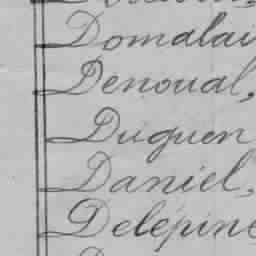 Domalai
Denoual,
Duguen
Daniel,
Delépine